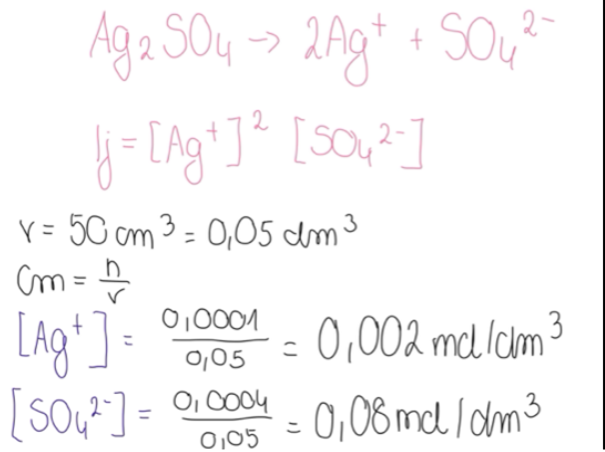 Ag₂SO₄ → 2Ag⁺ + SO₄²⁻
Ij = [Ag⁺]² [SO₄²⁻]
V = 50 cm³ = 0,05 dm³
Cm = n/V
[Ag⁺] = 0,0001/0,05 = 0,002 mol/dm³
[SO₄²⁻] = 0,0004/0,05 = 0,08 mol/dm³